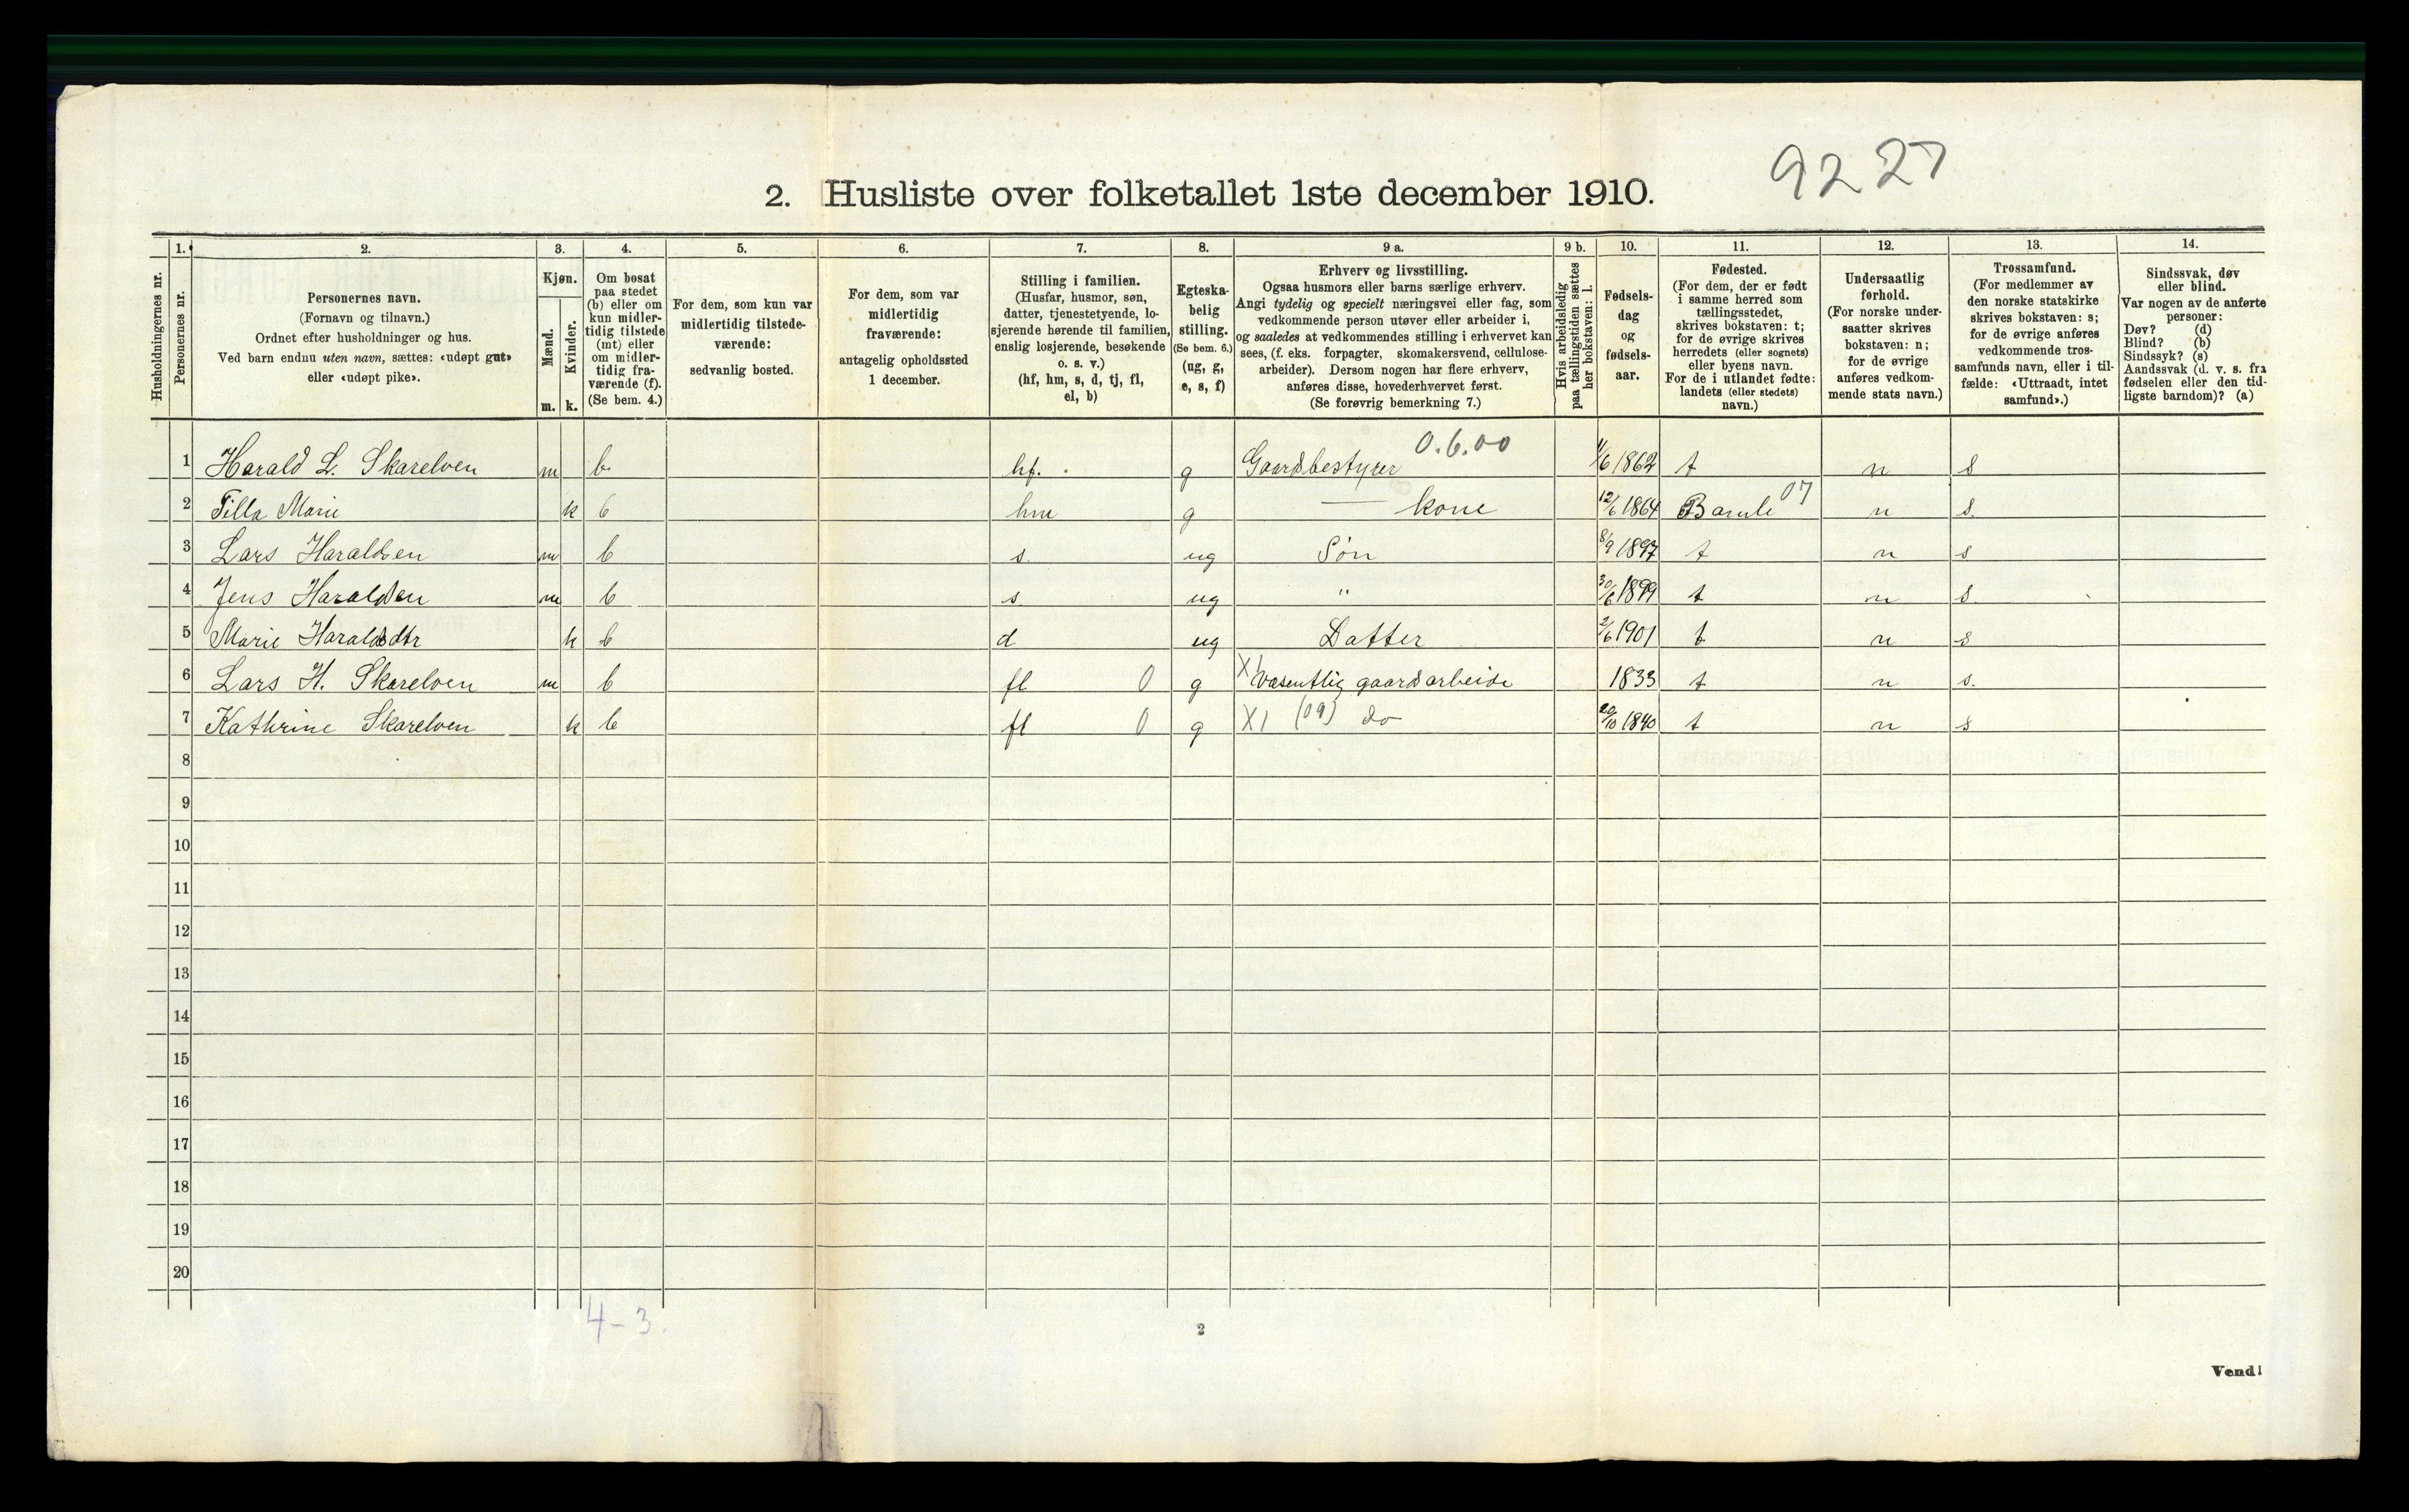 9227
2. Husliste over folketallet 1ste december 1910.
Husholdningernes nr.
1. Personernes nr.
2. Personernes navn.
(Fornavn og tilnavn.)
Ordnet efter husholdninger og hus.
Ved barn endnu uten navn, sættes: «udøpt gut»
eller «udøpt pike».
3. Kjøn.
Mænd. m.
Kvinder. k.
4. Om bosat
paa stedet
(b) eller om
kun midler-
tidig tilstede
(mt) eller
om midler-
tidig fra-
værende (f).
(Se bem. 4.)
5. For dem, som kun var
midlertidig tilstede-
værende:
sedvanlig bosted.
6. For dem, som var
midlertidig
fraværende:
antagelig opholdssted
1 december.
7. Stilling i familien.
(Husfar, husmor, søn,
datter, tjenestetyende, lo-
sjerende hørende til familien,
enslig losjerende, besøkende
o. s. v.)
(hf, hm, s, d, tj, fl,
el, b)
8. Egteska-
belig
stilling.
(Se bem. 6.)
(ug, g,
e, s, f)
9 a. Erhverv og livsstilling.
Ogsaa husmors eller barns særlige erhverv.
Angi tydelig og specielt næringsvei eller fag, som
vedkommende person utøver eller arbeider i,
og saaledes at vedkommendes stilling i erhvervet kan
sees, (f. eks. forpagter, skomakersvend, cellulose-
arbeider). Dersom nogen har flere erhverv,
anføres disse, hovederhvervet først.
(Se forøvrig bemerkning 7.)
9 b. Hvis arbeidsledig
paa tællingstiden sættes
her bokstaven: l.
10. Fødsels-
dag
og
fødsels-
aar.
11. Fødested.
(For dem, der er født
i samme herred som
tællingsstedet,
skrives bokstaven: t;
for de øvrige skrives
herredets (eller sognets)
eller byens navn.
For de i utlandet fødte:
landets (eller stedets)
navn.)
12. Undersaatlig
forhold.
(For norske under-
saatter skrives
bokstaven: n;
for de øvrige
anføres vedkom-
mende stats navn.)
13. Trossamfund.
(For medlemmer av
den norske statskirke
skrives bokstaven: s;
for de øvrige anføres
vedkommende tros-
samfunds navn, eller i til-
fælde: «Uttraadt, intet
samfund».)
14. Sindssvak, døv
eller blind.
Var nogen av de anførte
personer:
Døv? (d)
Blind? (b)
Sindssyk? (s)
Aandssvak (d. v. s. fra
fødselen eller den tid-
ligste barndom)? (a)
0.6.00
1 Harald L. Skarelven m b. hf. g Gaardsbestyrer 1/6 1862 t n s
2 Tilla Marie k b hm g — kone 12/6 1864 Bamle 07 n s.
3 Lars Haraldsen m b s. ug Søn 8/9 1897 t n s
4 Jens Haraldsen m b s ug " 30/6 1899 t n s.
5 Marie Haraldsdtr k b d ug Datter 2/6 1901 t n s
6 Lars H. Skarelven m b fl 0 g X1 væsentlig gaardsarbeide 1833 t n s.
7 Kathrine Skarelven k b fl 0 g X1 (09) do 20/10 1840 t n s
8
9
10
11
12
13
14
15
16
17
18
19
20
4-3.
2
Vend!